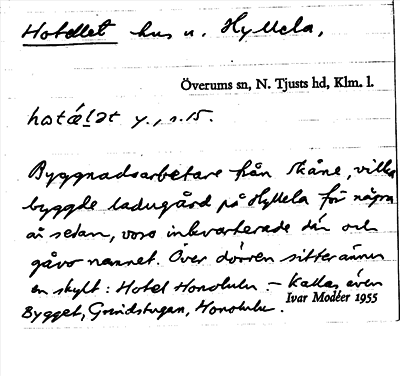 Hotellet hus u. Hyllela,
Överums sn, N. Tjusts hd, Klm. l.
y., s. 15.
Byggnadsarbetare från Skåne, vilka
byggde ladugård på Hyllela för några
år sedan, voro inkvarterade där och
gåvo namnet. Över dörren sitter ännu
en skylt: Hotel Honolulu. – Kallas även
Ivar Modéer 1955
Bygget, Grindstugan, Honolulu.